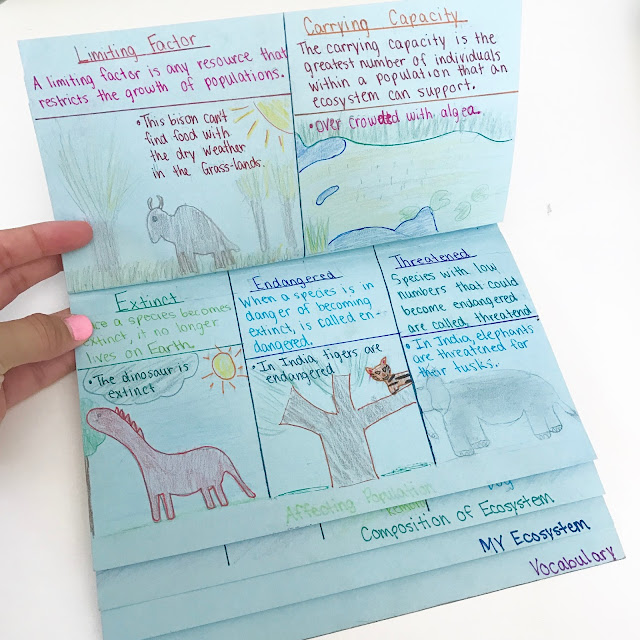 Limiting Factor
A limiting factor is any resource that
restricts the growth of populations.
• This bison can't
find food with
the dry weather
in the Grass-lands.
Carrying Capacity
The carrying capacity is the
greatest number of individuals
within a population that an
ecosystem can support.
• over crowded with algea.
Extinct
a species becomes
extinct, it no longer
lives on Earth.
• The dinosaur is
extinct
Endangered
When a species is in
danger of becoming
extinct, is called en-
dangered.
• In India, tigers are
endangered
Threatened
Species with low
numbers that could
become endangered
are called threatend
• In India, elephants
are threatened for
their tusks.
Affecting Population
Composition of Ecosystem
MY Ecosystem
Vocabulary